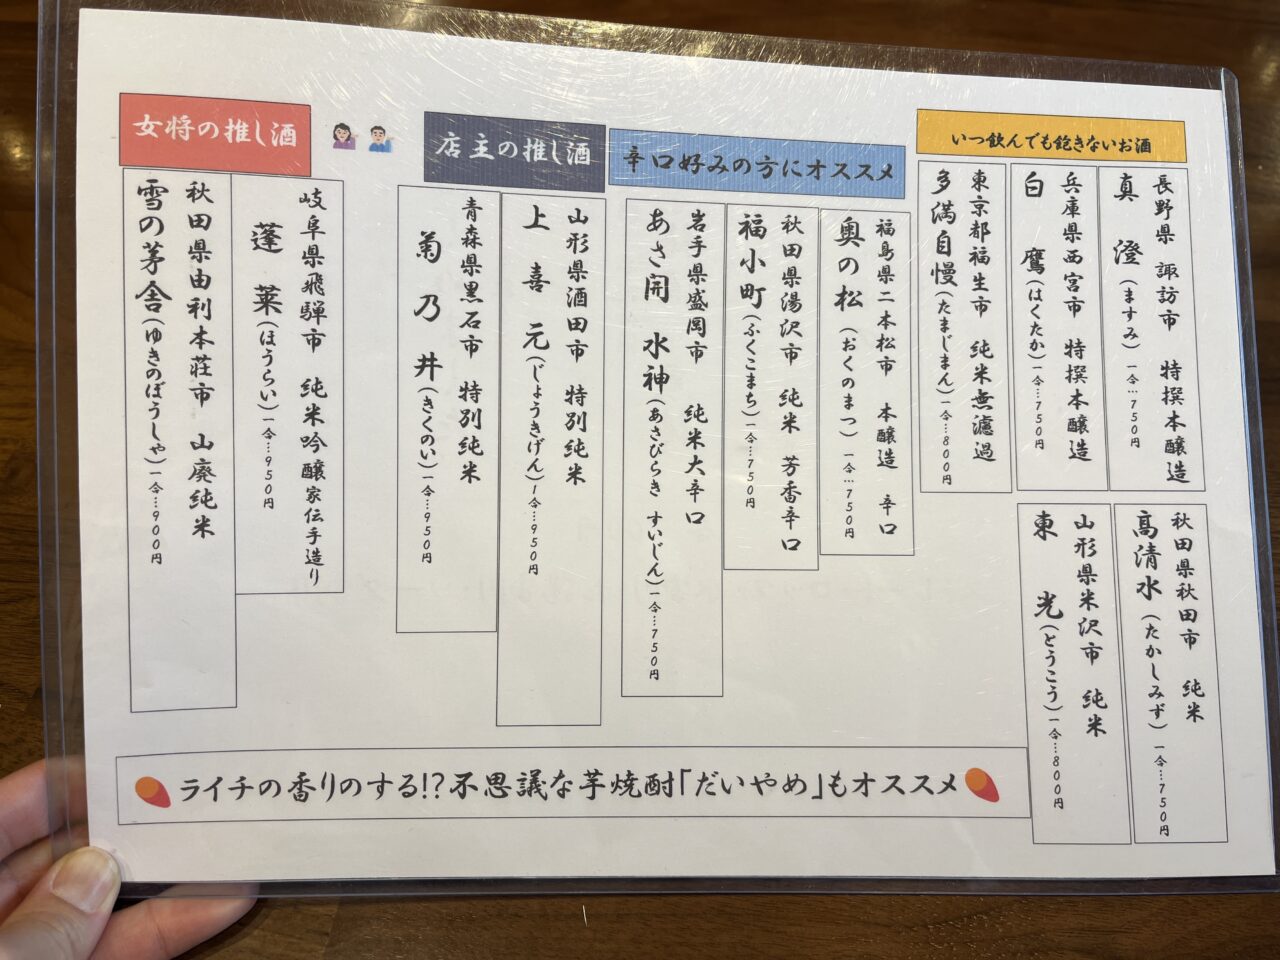 いつ飲んでも飽きないお酒
長野県 諏訪市 特撰本醸造
真澄(ますみ)一合…750円
兵庫県西宮市 特撰本醸造
白鷹(はくたか)一合…750円
東京都福生市 純米無濾過
多満自慢(たまじまん)一合…800円
秋田県秋田市 純米
高清水(たかしみず)一合…750円
山形県米沢市 純米
東光(とうこう)一合…800円
辛口好みの方にオススメ
福島県二本松市 本醸造 辛口
奥の松(おくのまつ)一合…750円
秋田県湯沢市 純米 芳香辛口
福小町(ふくこまち)一合…750円
岩手県盛岡市 純米大辛口
あさ開 水神(あさびらき すいじん)一合…750円
店主の推し酒
山形県酒田市 特別純米
上喜元(じょうきげん)1合…950円
青森県黒石市 特別純米
菊乃井(きくのい)一合…950円
女将の推し酒
岐阜県飛騨市 純米吟醸家伝手造り
蓬莱(ほうらい)一合…950円
秋田県由利本荘市 山廃純米
雪の茅舎(ゆきのぼうしゃ)一合…900円
ライチの香りのする!?不思議な芋焼酎「だいやめ」もオススメ